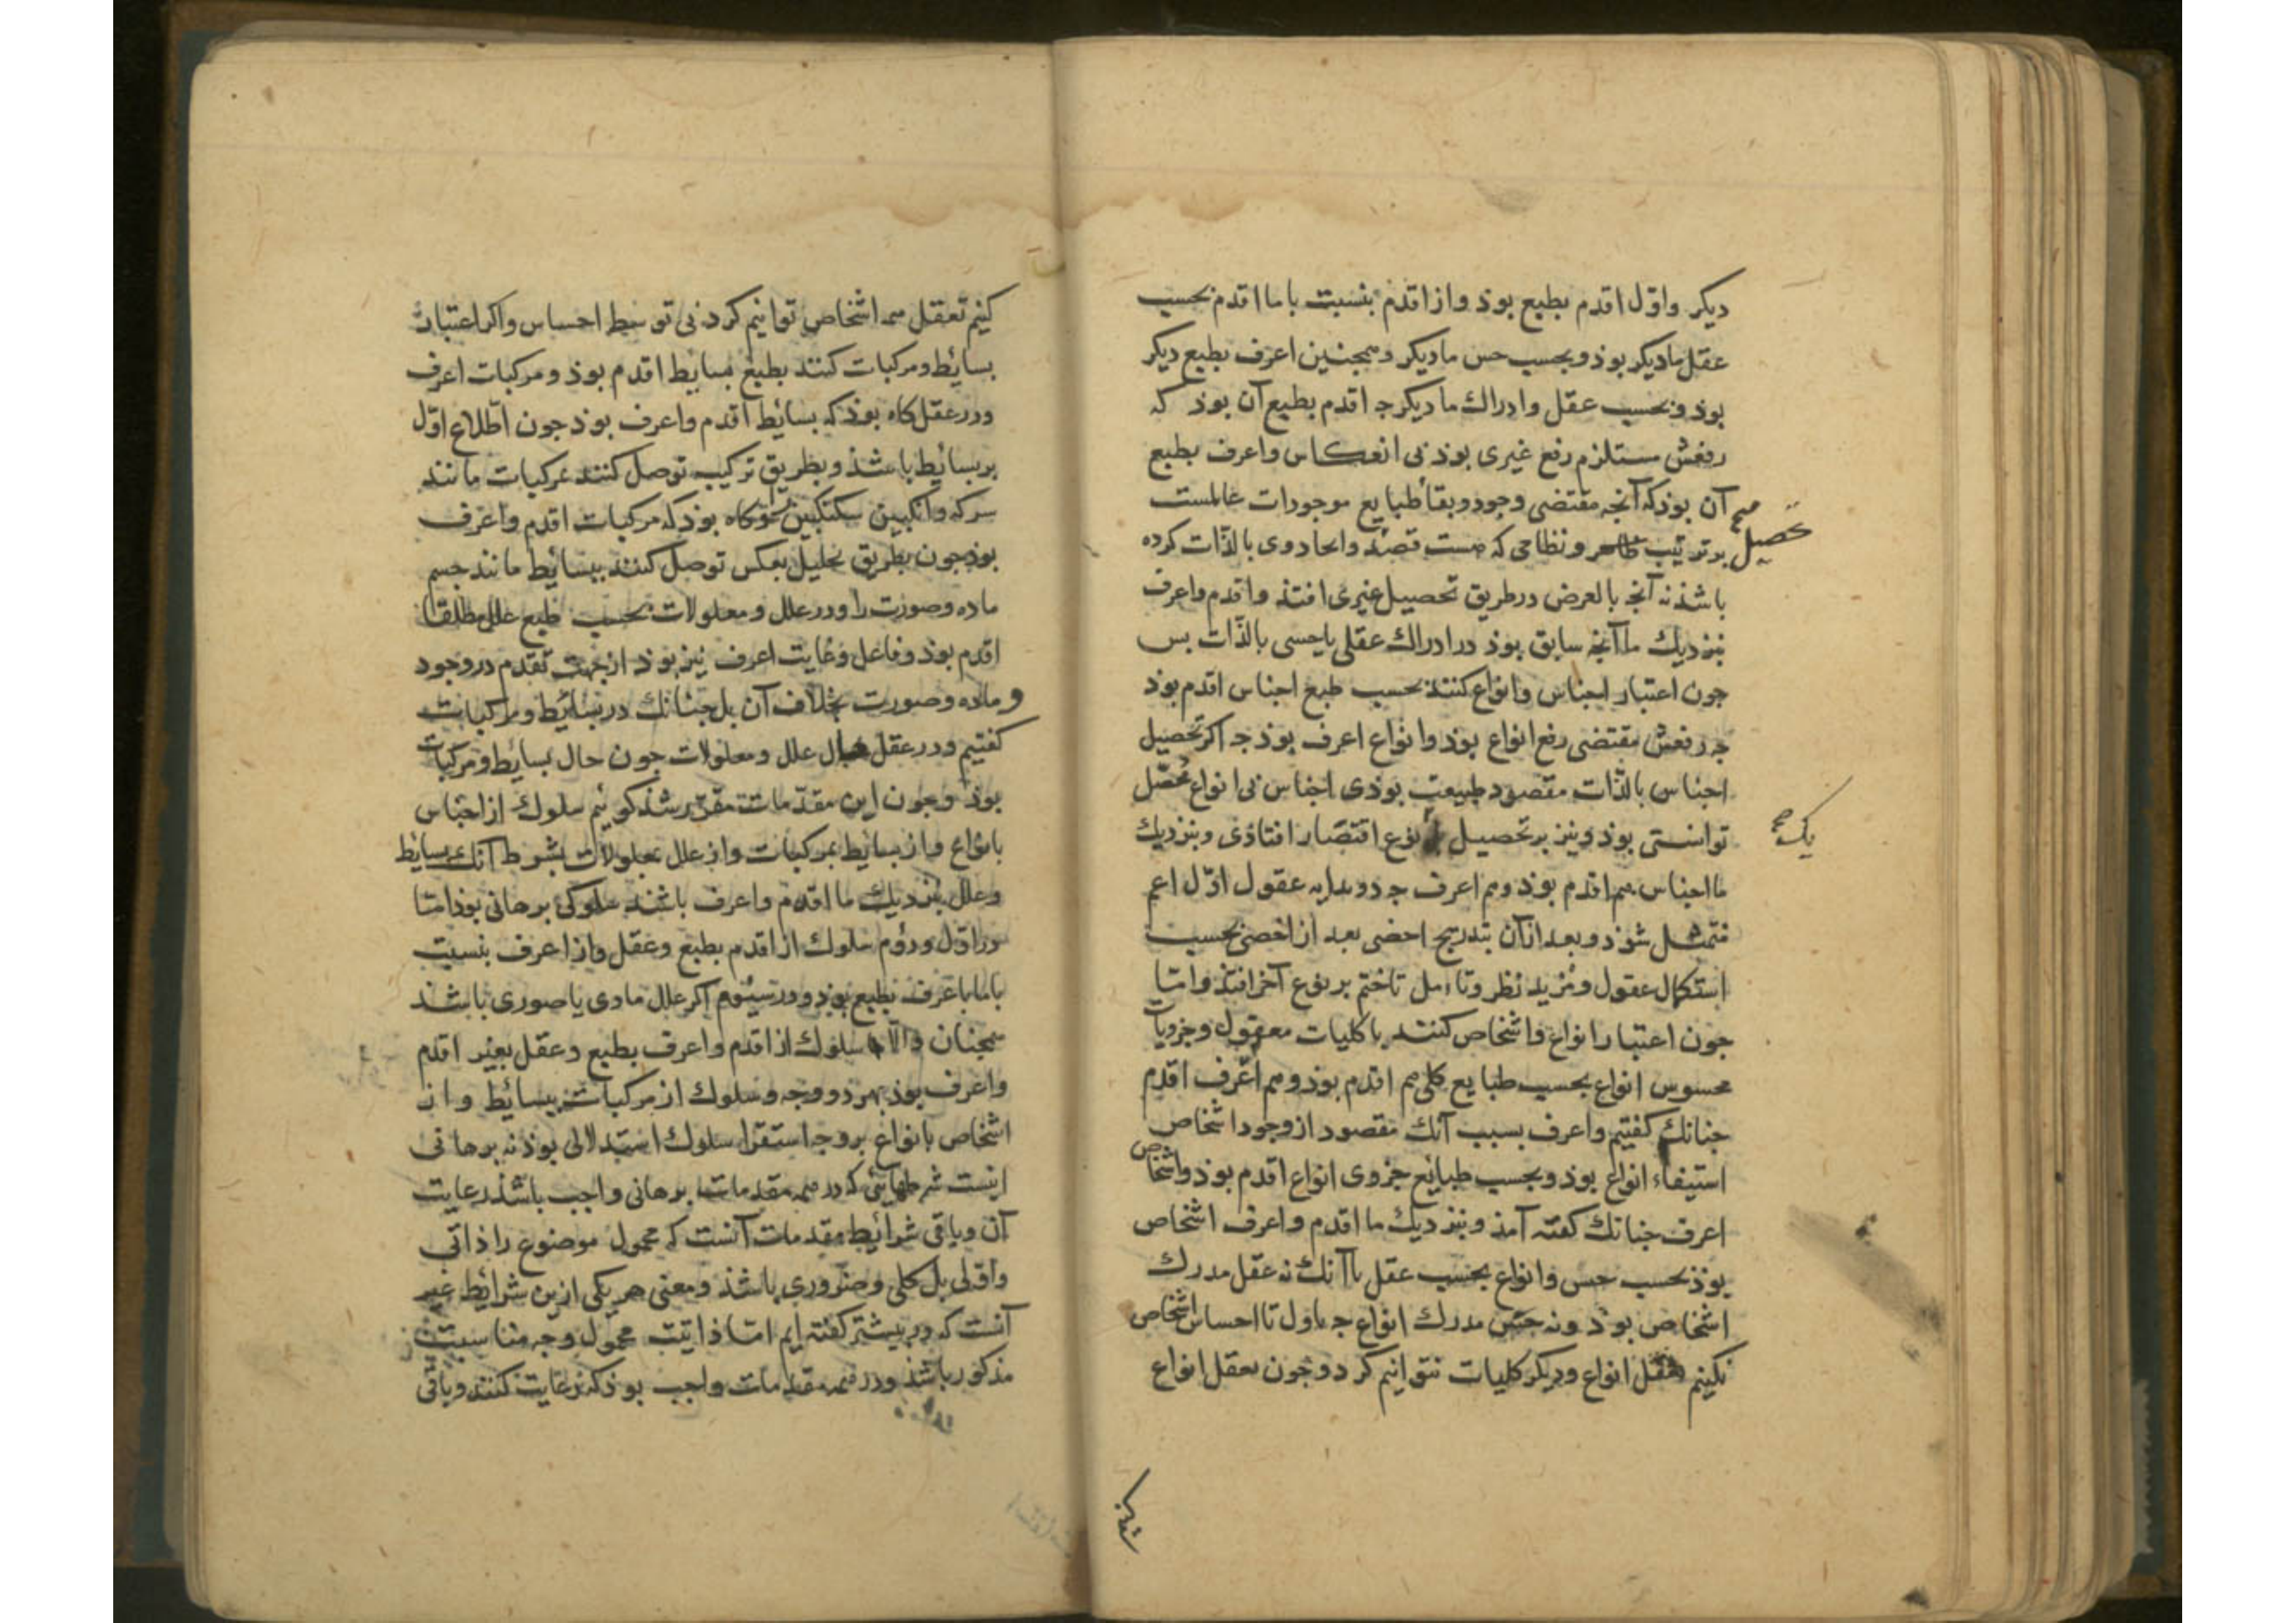 دیکر واوّل اقدم بطبع بوذ واز اقدم بنسبت باما اقدم بحسب
عقل ما دیکر بوذ وبحسب حس ما دیکر وهمجنین اعرف بطبع دیکر
بوذ وبحسب عقل وادراك ما دیکر جه اقدم بطبع آن بوذ که
رفعش مستلزم رفع غیری بوذ بی انعکاس واعرف بطبع
آن بوذ که آنجه مقتضی وجود وبقأ طبایع موجودات عالمست
بر ترتیب ونظامی که هست قصذ وایجاد وی بالذّات کرده
تحصیل صح
باشذ نه آنجه بالعرض در طریق تحصیل غیری افتذ واقدم واعرف
بنزدیك ما آنجه سابق بوذ در ادراك عقلی یا حسی بالذّات بس
جون اعتبار اجناس وانواع کنند بحسب طبع اجناس اقدم بوذ
جه رفعش مقتضی رفع انواع بوذ وانواع اعرف بوذ جه اکر تحصیل
اجناس بالذّات مقصود طبیعت بوذی اجناس بی انواع محصّل
توانستی بوذ ونیز بر تحصیل نوع اقتصار افتاذی وبنزدیك
یك صح
ما اجناس هم اقدم بوذ وهم اعرف جه در بدایه عقول اوّل اعم
متمثل شوذ وبعد ازآن بتدریج اخصی بعد از اخصی بحسب
استکمال عقول ومزید نظر وتامل تا ختم بر نوع آخر افتذ وامّا
جون اعتبار انواع واشخاص کنند با کلیات معقول وجزویات
محسوس انواع بحسب طبایع کلی هم اقدم بوذ وهم اعرف اقدم
جنانك کفتیم واعرف بسبب آنك مقصود از وجود اشخاص
استیفاء انواع بوذ وبحسب طبایع جزوی انواع اقدم بوذ واشخاص
اعرف جنانك کفته آمذ وبنزدیك ما اقدم واعرف اشخاص
بوذ بحسب حس وانواع بحسب عقل با آنك نه عقل مدرك
اشخاص بوذ ونه حس مدرك انواع جه ماول تا احساس اشخاص
نکنیم تعقل انواع ودیکر کلیات نتوانیم کرد وجون تعقل انواع
کنیم تعقل همه اشخاص توانیم کرد بی توسط احساس واکر اعتبار
بسائط ومرکبات کنند بطبع بسایط اقدم بوذ ومرکبات اعرف
ودر عقل کاه بوذ که بسائط اقدم واعرف بوذ جون اطّلاع اوّل
بر بسائط باشذ وبطریق ترکیب توصل کنند بمرکبات مانند
سرکه وانکبین سکنکبین وکاه بوذ که مرکبات اقدم واعرف
بوذ جون بطریق تحلیل بعکس توصل کنند ببسائط مانند جسم
ماده وصورت را ودر علل ومعلولات بحسب طبع علل مطلقا
اقدم بوذ وفاعل وغایت اعرف نیز بوذ از جهت تقدم در وجود
وماده وصورت بخلاف آن بل جنانك در بسائط ومرکبات
کفتیم ودر عقل حال علل ومعلولات جون حال بسایط ومرکبات
بوذ وجون این مقدّمات مقرّر شذ کوئیم سلوك از اجناس
بانواع واز بسایط بمرکبات واز علل بمعلولات بشرط آنك بسایط
وعلل بنزدیك ما اقدم واعرف باشند سلوکی برهانی بوذ امّا
در اوّل ودوّم سلوك از اقدم بطبع وعقل واز اعرف بنسبت
باما باعرف بطبع بوذ ودر سیّوم اکر علل مادی یا صوری باشند
همجنان والّا سلوك از اقدم واعرف بطبع وعقل بغیر اقدم
واعرف بوذ بهر دو وجه وسلوك از مرکبات ببسائط واز
اشخاص بانواع بر وجه استقرا سلوك استدلالی بوذ نه برهانی
اینست شرطهائی که در همه مقدمات برهانی واجب باشذ رعایت
آن وباقی شرائط مقدمات آنست که محمول موضوع را ذاتی
واوّلی بل کلی وضروری باشذ ومعنی هر یکی ازین شرائط غیر
آنست که در بیشتر کفته ایم امّا ذاتیت محمول وجه مناسبت
مذکور باشذ ودر همه مقدمات واجب بوذ که رعایت کنند وباقی